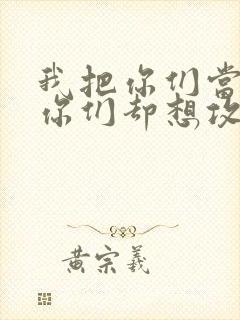 我把你们当
你们却想攻
黄宗羲